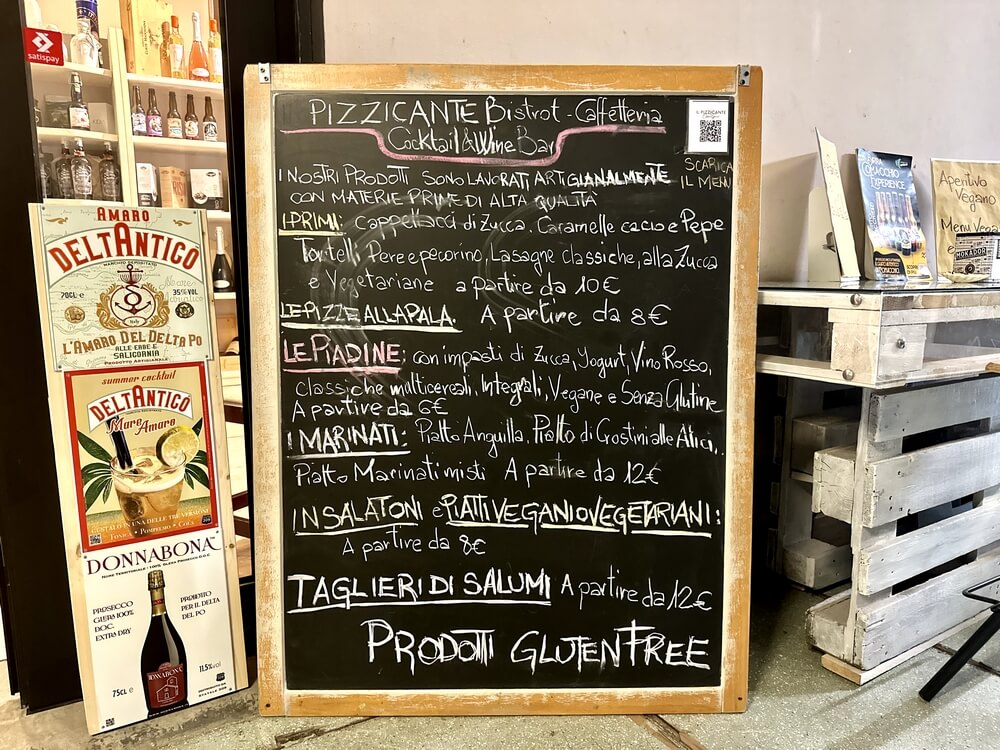 satispay
AMARO
DELTANTICO
MARCHIO DEPOSITATO
70CL e
35%VOL
Italy
L'AMARO DEL DELTA PO
ALLE ERBE E
SALICORNIA
PRODOTTO ARTIGIANALE
summer cocktail
DELTANTICO
Mare Amaro
GUSTALO IN UNA DELLE TRE VERSIONI
TONICA • POMPELMO • COLA
DONNABONA
NOME TERRITORIALE • 100% GLERA PROSECCO D.O.C.
PROSECCO
GLERA 100%
D.O.C.
EXTRA DRY
PRODOTTO
PER IL DELTA
DEL PO
DONNABONA
75CL e
11,5%vol
PIZZICANTE Bistrot - Caffetteria
Cocktail & Wine Bar
IL PIZZICANTE
SCARICA
IL MENU
I NOSTRI PRODOTTI SONO LAVORATI ARTIGIANALMENTE
CON MATERIE PRIME DI ALTA QUALITÀ
I PRIMI: cappellacci di Zucca, Caramelle cacio e Pepe
Tortelli Pere e pecorino, Lasagne classiche, alla Zucca
e Vegetariane a partire da 10€
LE PIZZE ALLA PALA. A partire da 8€
LE PIADINE: con impasti di Zucca, Yogurt, Vino Rosso,
classiche multicereali, Integrali, Vegane e Senza Glutine
A partire da 6€
I MARINATI: Piatto Anguilla, Piatto di Crostini alle Alici,
Piatto Marinati misti A partire da 12€
INSALATONI e PIATTI VEGANI O VEGETARIANI:
A partire da 8€
TAGLIERI DI SALUMI A partire da 12€
PRODOTTI GLUTEN FREE
COMACCHIO
EXPERIENCE
Aperitivo
Vegano
Menu Vega
e
MOKADOR